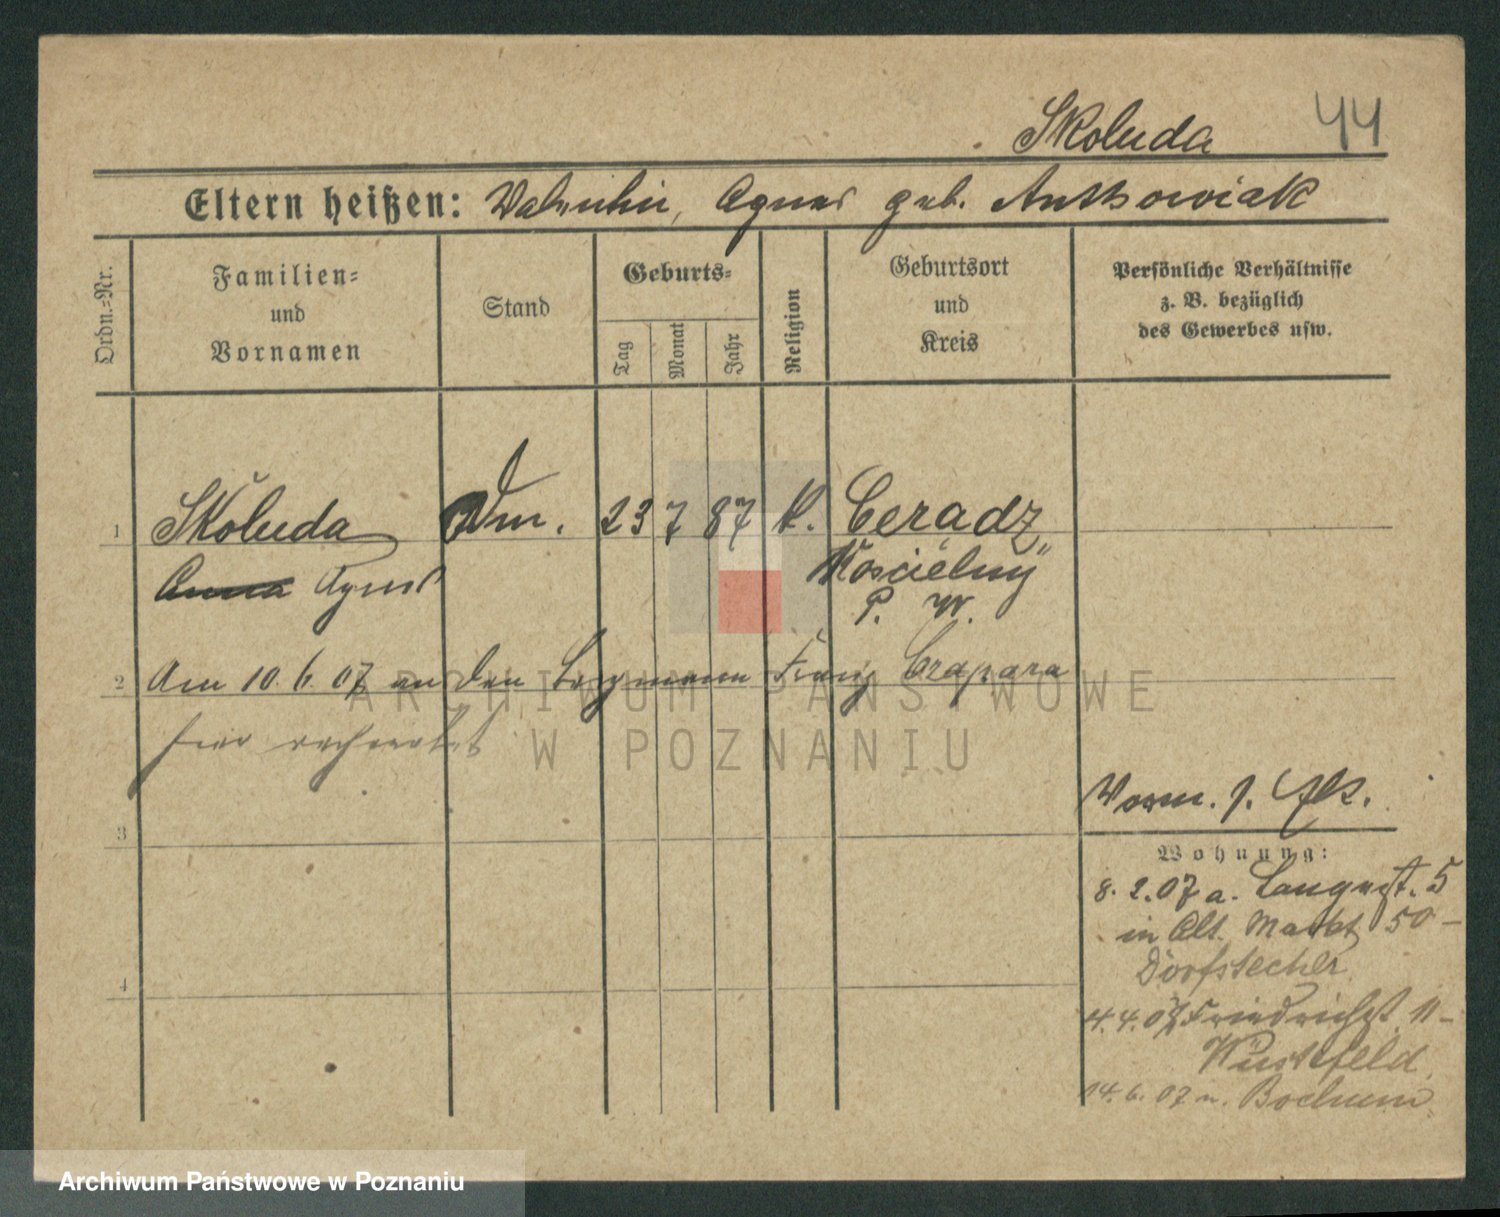 Skoluda 44
Eltern heißen: Valentin, Agnes geb. Antkowiak
Ordn.-Nr.
Familien-
und
Vornamen
Stand
Geburts-
Tag
Monat
Jahr
Religion
Geburtsort
und
Kreis
Persönliche Verhältnisse
z. B. bezüglich
des Gewerbes usw.
1 Skoluda 23 7 87 k. Ceradz
Kościelny
Anna Agnes P. W.
2 Am 10. 6. 07 an den Bergmann Franz Czapara
hier verheiratet
Vorm. f.
3
Wohnung:
8. 2. 07 a. Langest. 5
in Alt. Markt 50 -
4
4. 4. 07 Friedrichst. 11 -
Wustefeld
14. 6. 07 n. Bochum
ARCHIWUM PAŃSTWOWE
W POZNANIU
Archiwum Państwowe w Poznaniu